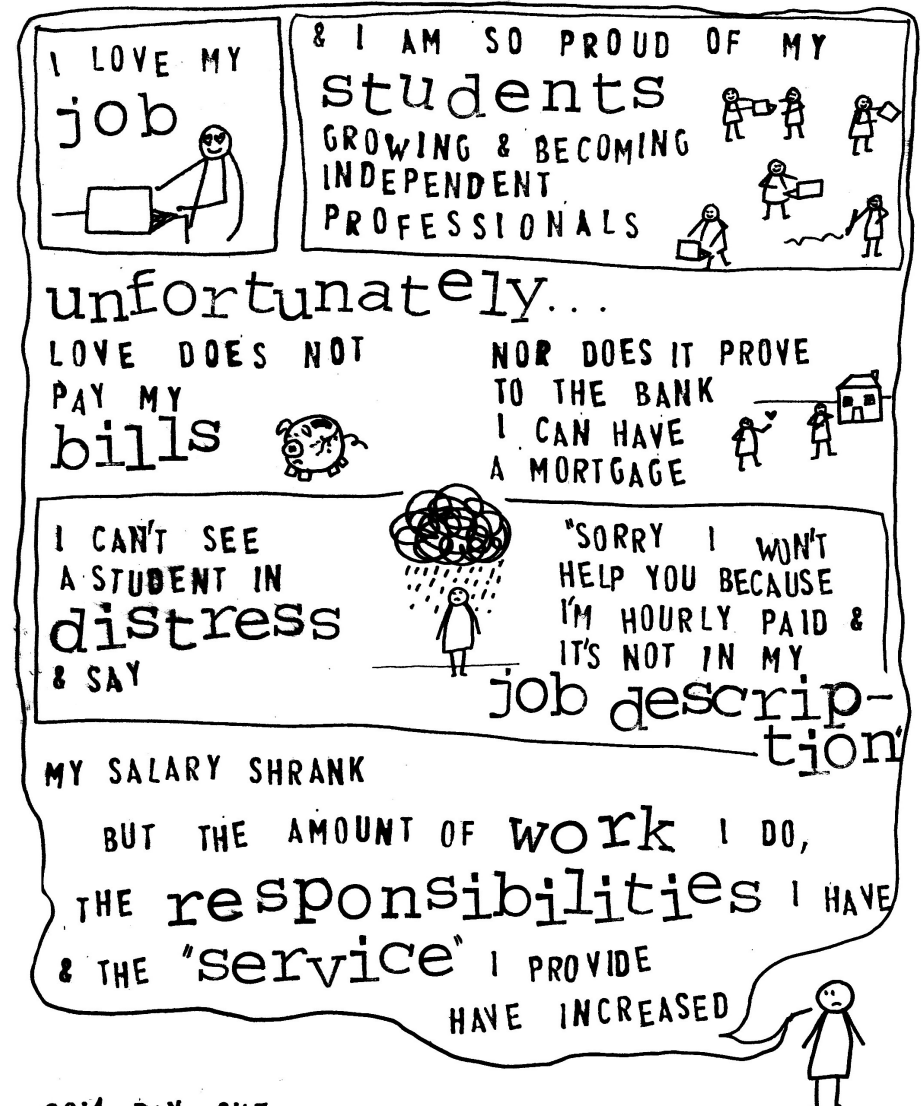 I LOVE MY
job
& I AM SO PROUD OF MY
students
GROWING & BECOMING
INDEPENDENT
PROFESSIONALS
unfortunately...
LOVE DOES NOT
PAY MY
bills
NOR DOES IT PROVE
TO THE BANK
I CAN HAVE
A MORTGAGE
I CAN'T SEE
A STUDENT IN
distress
& SAY
"SORRY I WON'T
HELP YOU BECAUSE
I'M HOURLY PAID &
IT'S NOT IN MY
job descrip-
tion"
MY SALARY SHRANK
BUT THE AMOUNT OF work I DO,
THE responsibilities I HAVE
& THE "service" I PROVIDE
HAVE INCREASED